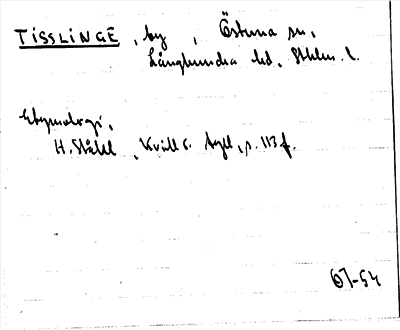 TISSLINGE, by, Östuna sn,
Långhundra hd, Sthlms l.
Etymologi,
H. Ståhl, Kvill o. Tegl, s. 113 f.
OJ-54